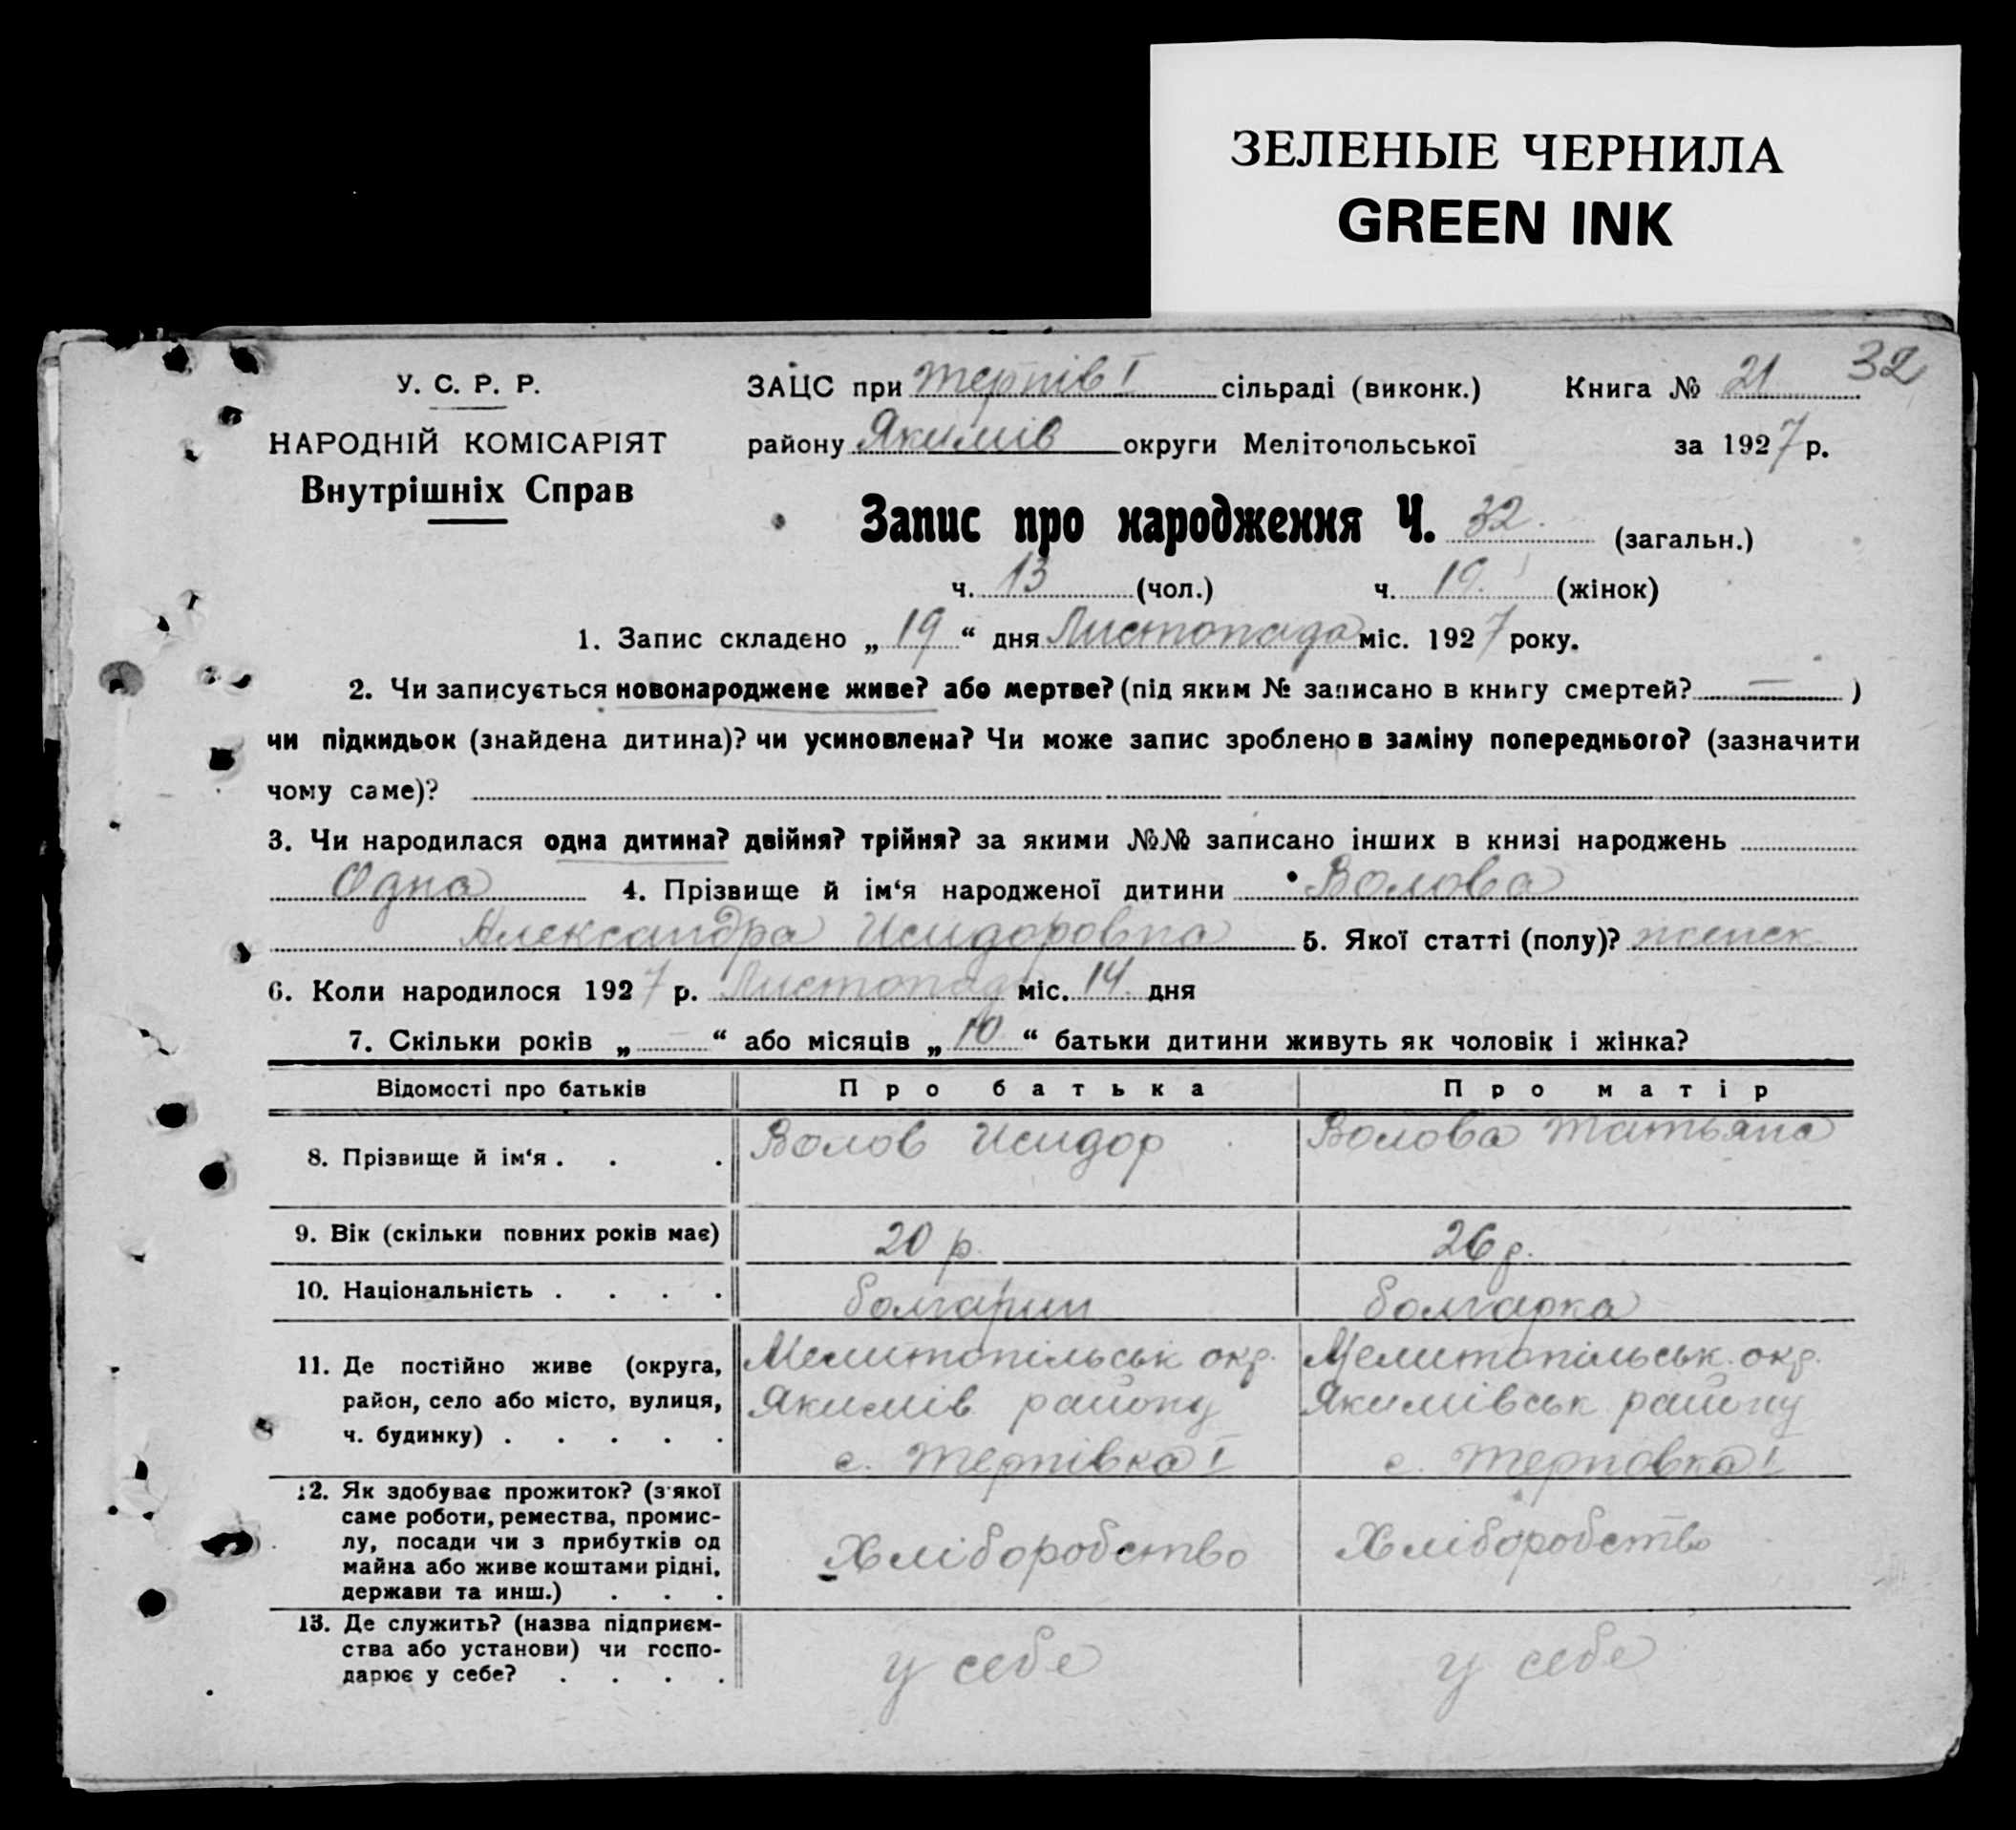 ЗЕЛЕНЫЕ ЧЕРНИЛА
GREEN INK
32
У. С. Р. Р.
НАРОДНІЙ КОМІСАРІЯТ
Внутрішніх Справ
ЗАЦС при Терпів I сільраді (виконк.) Книга № 21
району Якимів округи Мелітопольської за 1927 р.
Запис про народження Ч. 32. (загальн.)
ч. 13 (чол.) ч. 19. (жінок)
1. Запис складено „ 19 “ дня Листопада міс. 1927 року.
2. Чи записується новонароджене живе? або мертве? (під яким № записано в книгу смертей? — )
чи підкидьок (знайдена дитина)? чи усиновлена? Чи може запис зроблено в заміну попереднього? (зазначити
чому саме)?
3. Чи народилася одна дитина? двійня? трійня? за якими №№ записано інших в книзі народжень
Одна 4. Прізвище й ім‘я народженої дитини Волова
Александра Исидоровна 5. Якої статті (полу)? женск
6. Коли народилося 1927 р. Листопада міс. 14 дня
7. Скільки років „ — “ або місяців „ 10 “ батьки дитини живуть як чоловік і жінка?
Відомості про батьків Про батька Про матір
8. Прізвище й ім‘я . . . Волов Исидор Волова Татьяна
9. Вік (скільки повних років має) 20 р. 26 р.
10. Національність . . . . болгарин болгарка
11. Де постійно живе (округа, Мелитопільськ окр. Мелитопільськ. окр.
район, село або місто, вулиця, Якимів району Якимівськ району
ч. будинку) . . . . . с. Терпівка I с. Терповка I
12. Як здобуває прожиток? (з якої
саме роботи, ремества, промис-
лу, посади чи з прибутків од Хліборобство Хліборобство
майна або живе коштами рідні,
держави та инш.) . . .
13. Де служить? (назва підприєм-
ства або установи) чи госпо- у себе у себе
дарює у себе? . . . .